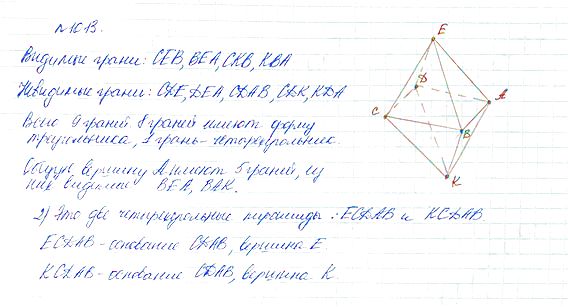 №1013.
Видимые грани: CEB, BEA, CKB, KBA
Невидимые грани: CDE, DEA, CDAB, CDK, KDA
Всего 9 граней 8 граней имеют форму
треугольника, 1 грань-четырехугольник.
Общую вершину A имеют 5 граней, из
них видимые BEA, BAK.
2) Это две четырехугольные пирамиды: ECDAB и KCDAB
ECDAB-основание CDAB, вершина E
KCDAB-основание CDAB, вершина K
E
D
A
C
B
K